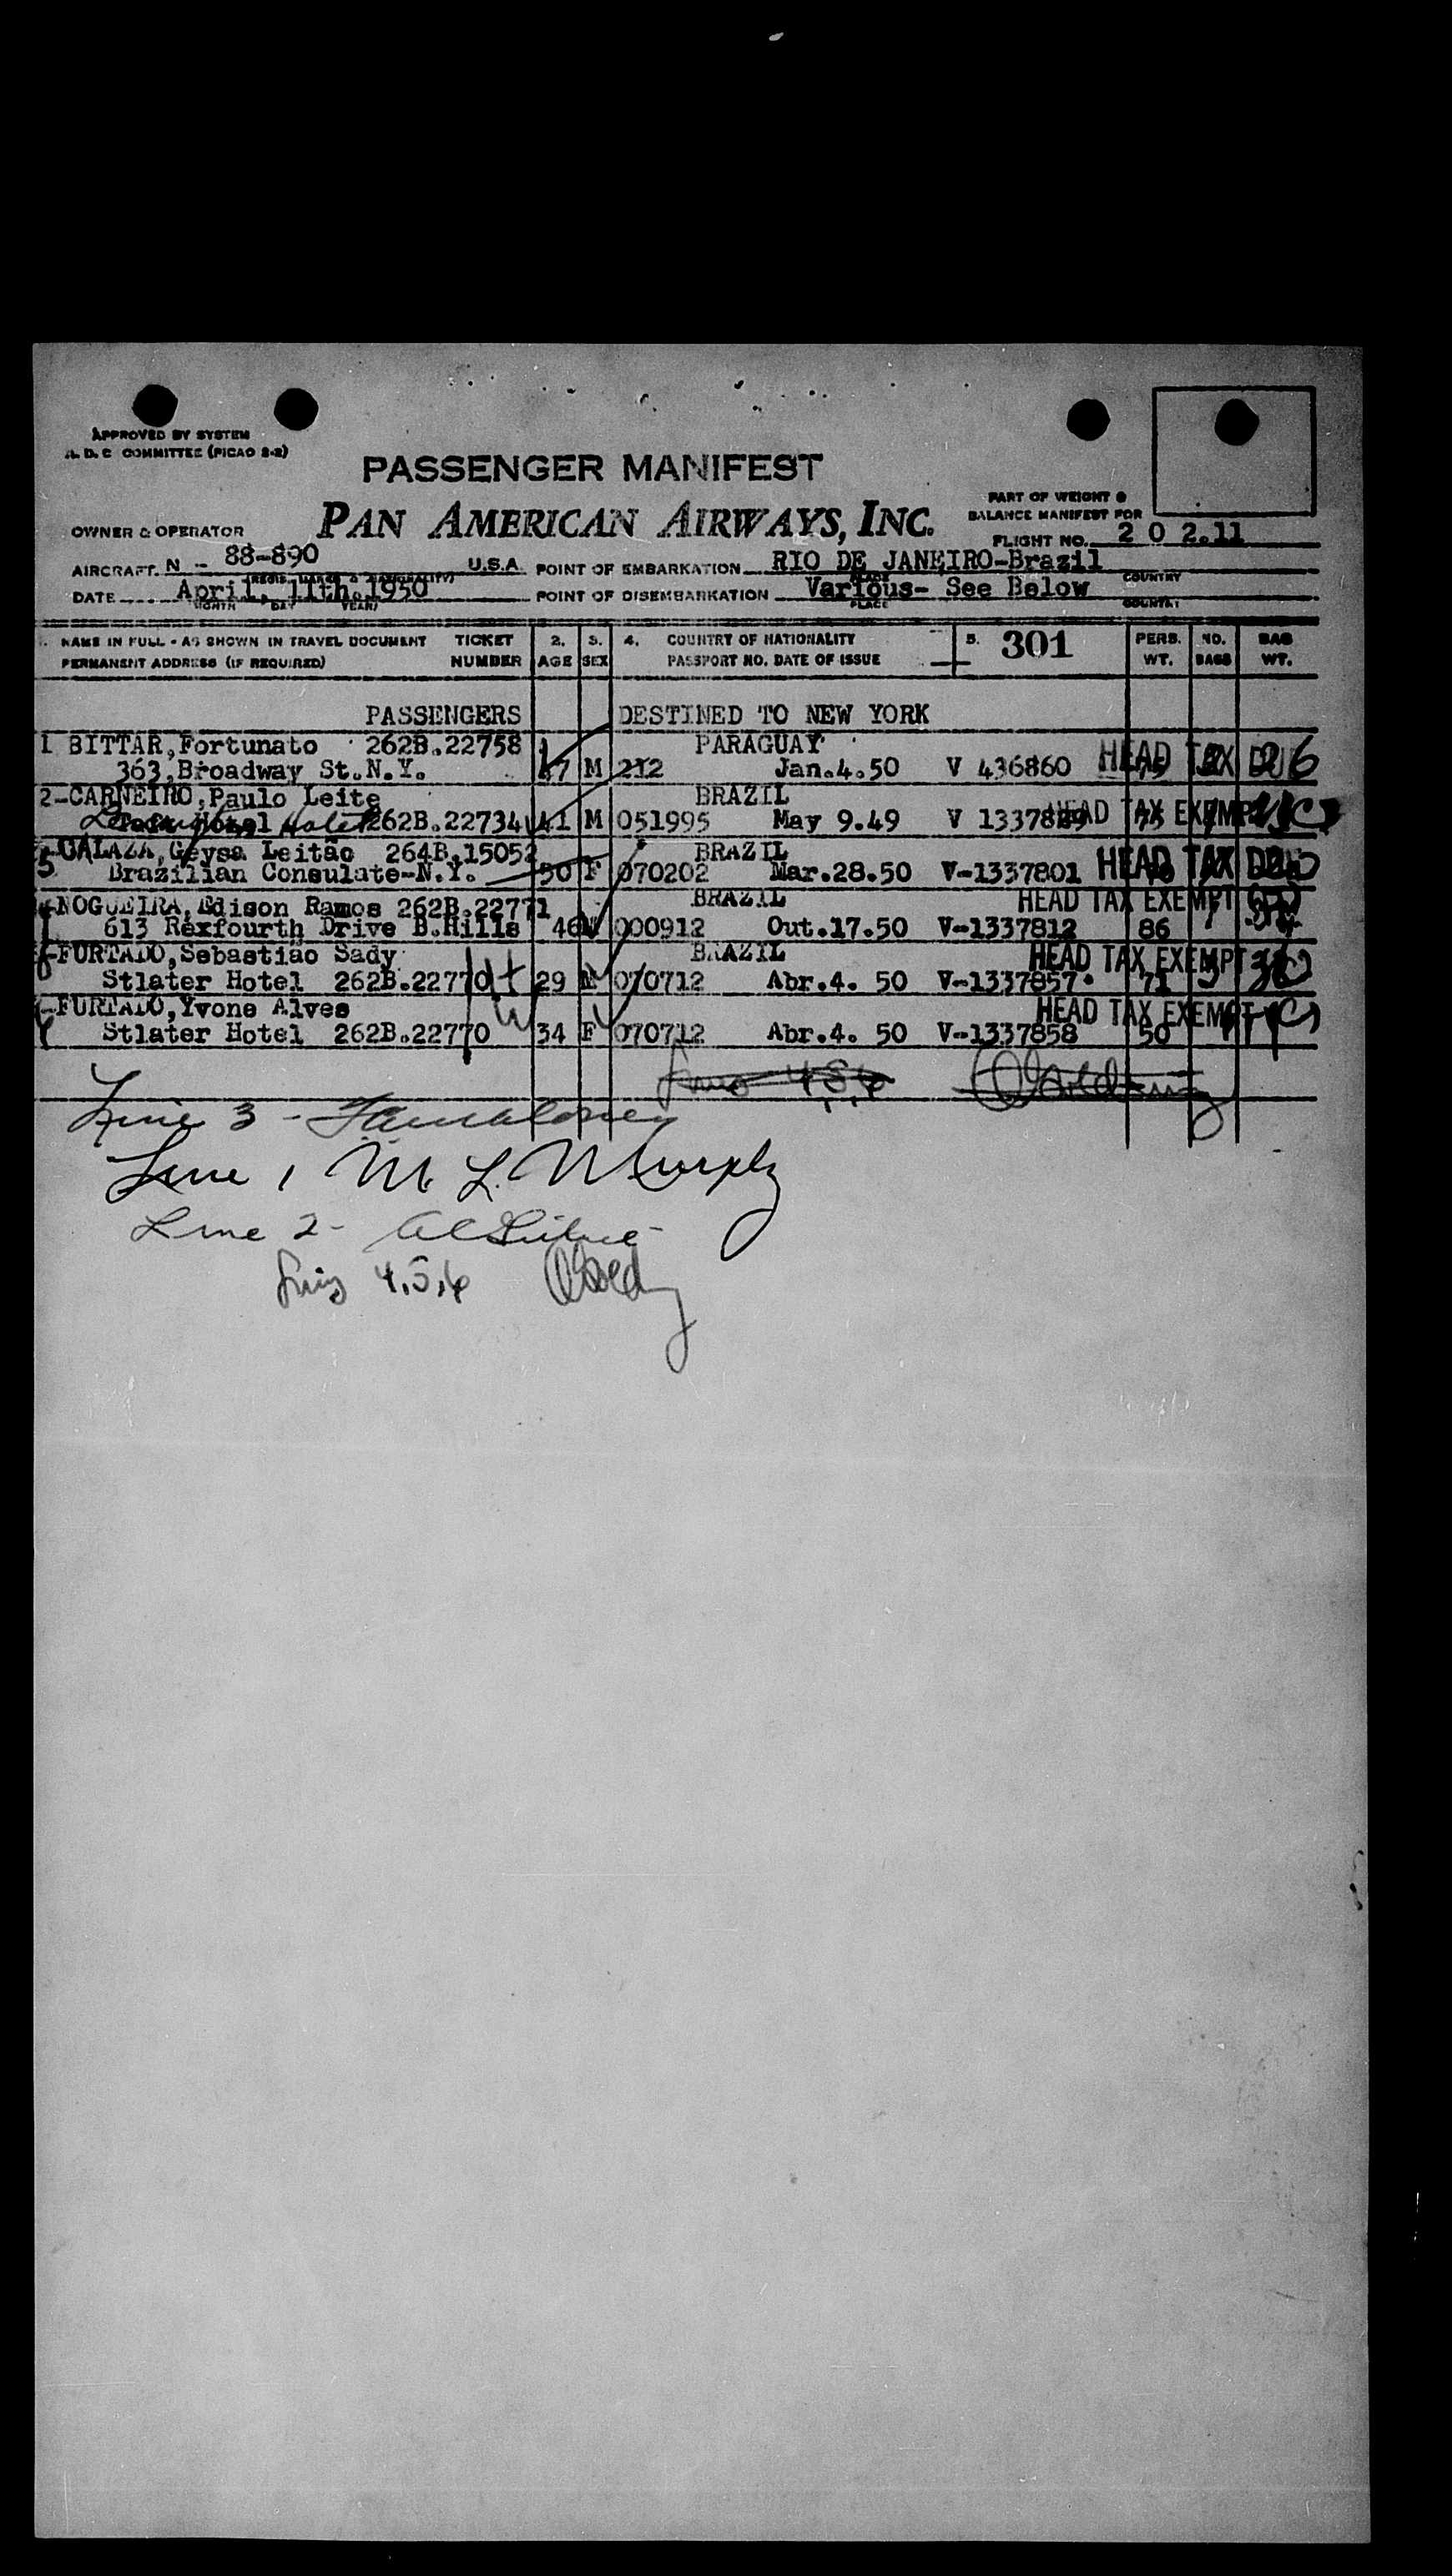 APPROVED BY SYSTEM
A. D. C COMMITTEE (PICAO 2-2)
PASSENGER MANIFEST
PAN AMERICAN AIRWAYS, INC.
PART OF WEIGHT &
BALANCE MANIFEST FOR
OWNER & OPERATOR
FLIGHT NO. 2 0 2.11
AIRCRAFT. N - 88-890 U.S.A. POINT OF EMBARKATION RIO DE JANEIRO-Brazil
PLACE COUNTRY
DATE April, 11th.1950 POINT OF DISEMBARKATION Various- See Below
MONTH DAY YEAR PLACE COUNTRY
1. NAME IN FULL - AS SHOWN IN TRAVEL DOCUMENT TICKET 2. 3. 4. COUNTRY OF NATIONALITY 5. 301 PERS. NO. BAG
PERMANENT ADDRESS (IF REQUIRED) NUMBER AGE SEX PASSPORT NO. DATE OF ISSUE WT. BAGS WT.
PASSENGERS DESTINED TO NEW YORK
1 BITTAR,Fortunato 262B.22758 PARAGUAY
363,Broadway St.N.Y. 47 M 212 Jan.4.50 V 436860 HEAD TAX DUE
2-CARNEIRO,Paulo Leite BRAZIL
Hotel 262B.22734 41 M 051995 May 9.49 V 1337889 HEAD TAX EXEMPT
CALAZA,Geysa Leitão 264B.15052 BRAZIL
3 Brazilian Consulate-N.Y. 50 F 070202 Mar.28.50 V-1337801 HEAD TAX DUE
NOGUEIRA,Edison Ramos 262B.22771 BRAZIL HEAD TAX EXEMPT
613 Rexfourth Drive B.Hills 46 M 000912 Out.17.50 V-1337812 86
FURTADO,Sebastião Sady BRAZIL HEAD TAX EXEMPT
Stlater Hotel 262B.22770 29 M 070712 Abr.4. 50 V-1337857 71 3
FURTADO,Yvone Alves HEAD TAX EXEMPT
Stlater Hotel 262B.22770 34 F 070712 Abr.4. 50 V-1337858 50
4,5,6
Line 3 -
Line 1 M. L. Murphy
Line 2 -
Lines 4,5,6